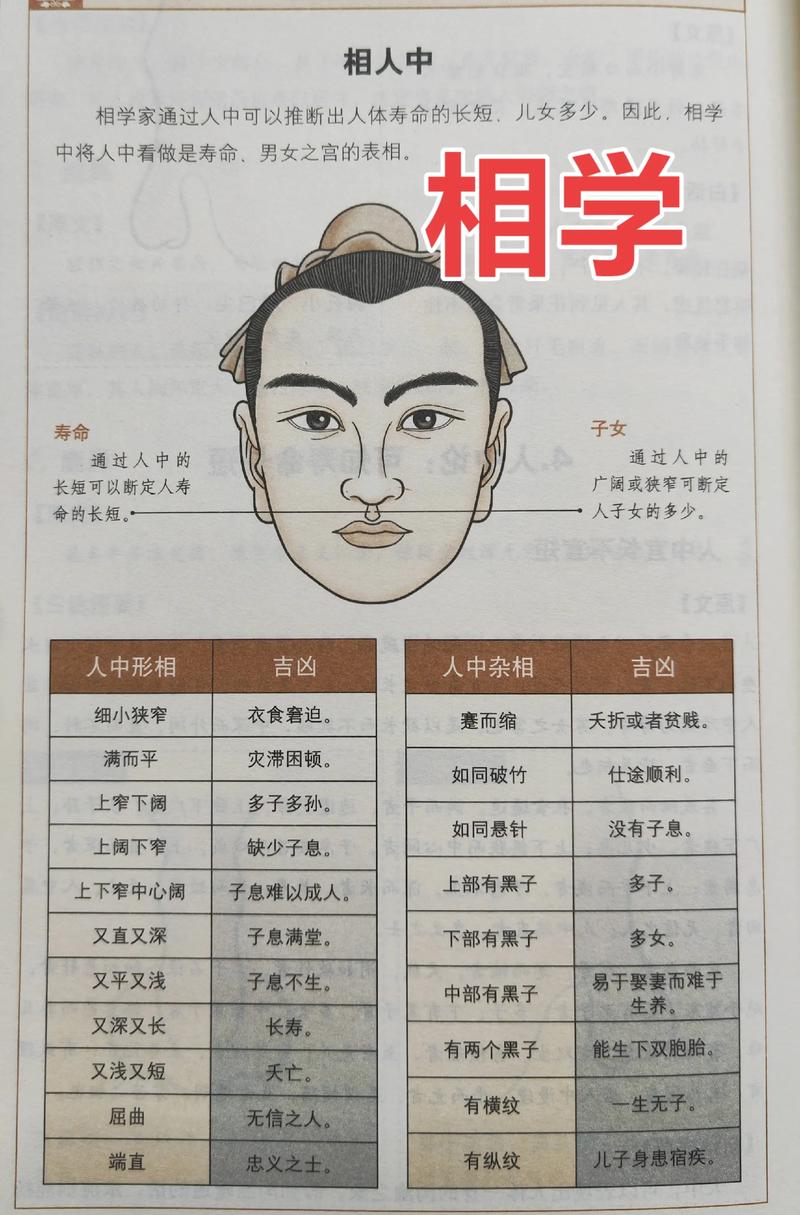 相人中
相学家通过人中可以推断出人体寿命的长短、儿女多少。因此，相学
中将人中看做是寿命、男女之宫的表相。
相学
寿命
通过人中的
长短可以断定人寿
命的长短。
子女
通过人中的
广阔或狭窄可断定
人子女的多少。
人中形相 吉凶
细小狭窄 衣食窘迫。
满而平 灾滞困顿。
上窄下阔 多子多孙。
上阔下窄 缺少子息。
上下窄中心阔 子息难以成人。
又直又深 子息满堂。
又平又浅 子息不生。
又深又长 长寿。
又浅又短 夭亡。
屈曲 无信之人。
端直 忠义之士。
人中杂相 吉凶
蹇而缩 夭折或者贫贱。
如同破竹 仕途顺利。
如同悬针 没有子息。
上部有黑子 多子。
下部有黑子 多女。
中部有黑子 易于娶妻而难于
生养。
有两个黑子 能生下双胞胎。
有横纹 一生无子。
有纵纹 儿子身患宿疾。